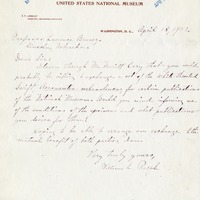 UNITED STATES NATIONAL MUSEUM
WASHINGTON, D.C., April 15, 1902.
Professor Lawrence Bruner,
Lincoln, Nebraska.
Dear Sir:
I learn through Mr. Merritt Cary that you would
probably be willing to exchange a set of the
for certain publications
of the National Museum. Would you mind informing me
of the condition of the specimens and what publications
you desire for them?
Hoping to be able to arrange an exchange to the
mutual benefit of both parties, I am,
Very truly yours,
William L.